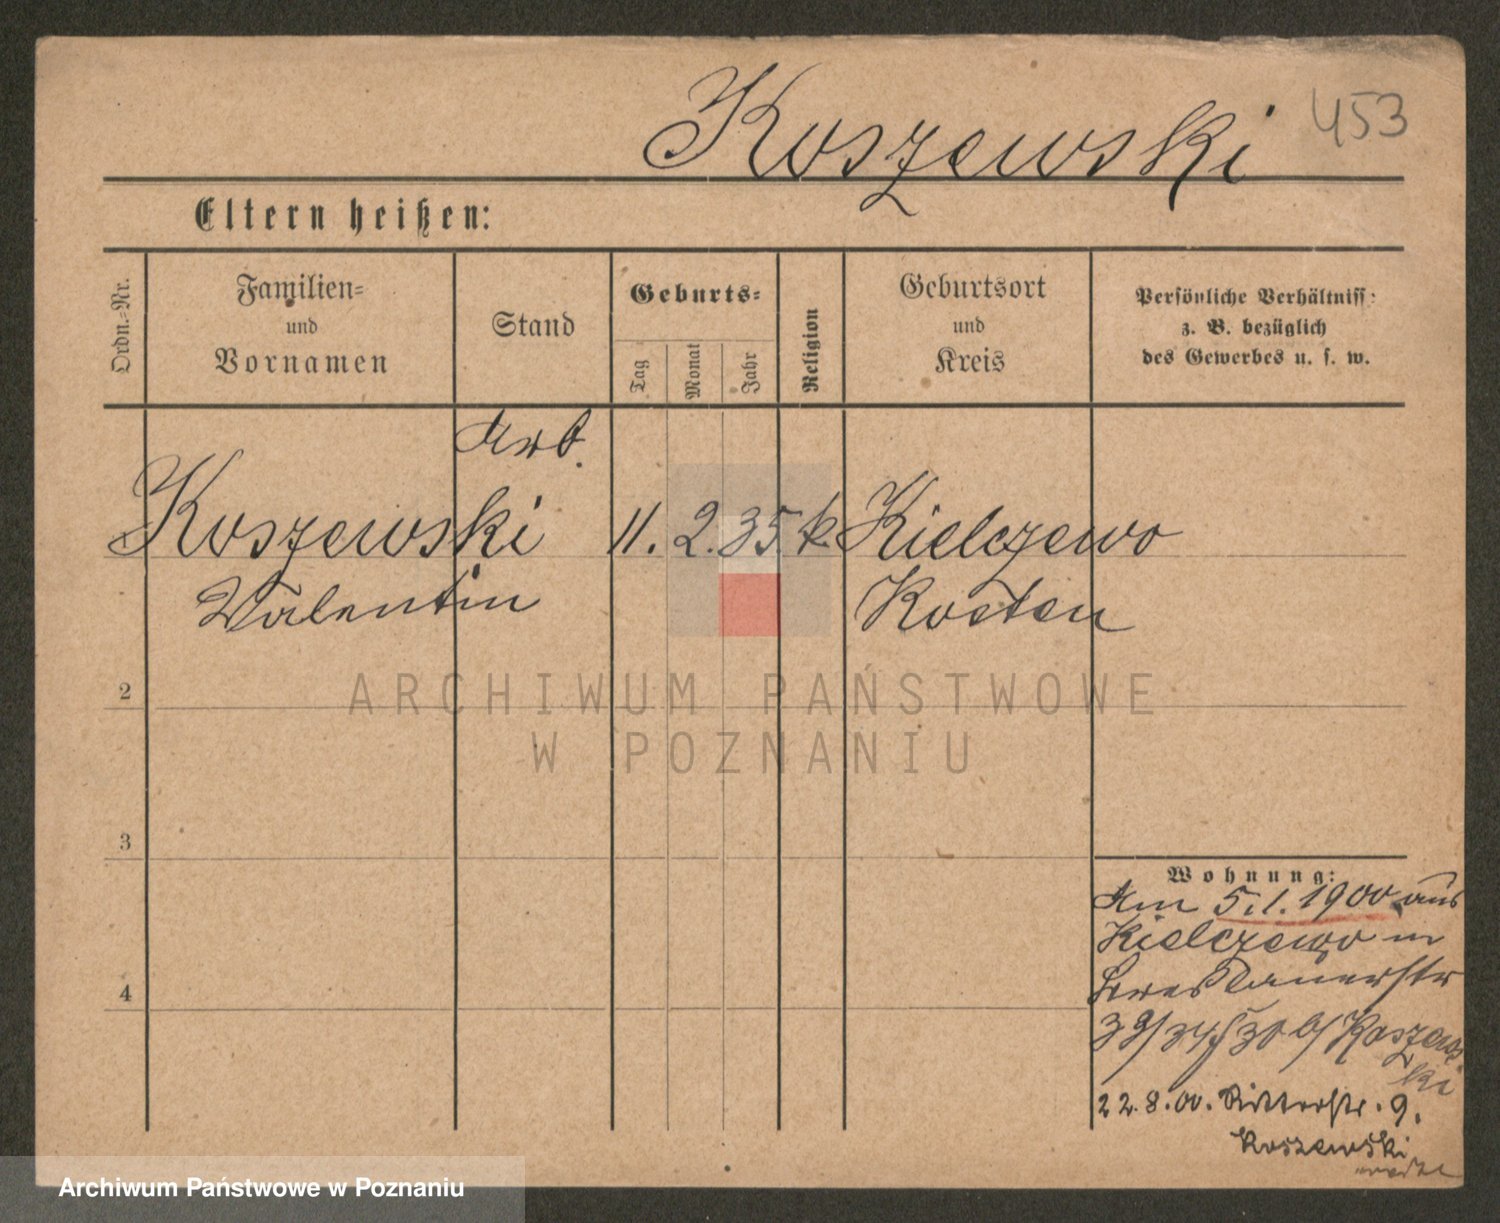 453
Koszewski
Eltern heißen:
Ordn.-Nr.
Familien-
und
Vornamen
Stand
Geburts-
Tag
Monat
Jahr
Religion
Geburtsort
und
Kreis
Persönliche Verhältniss:
z. B. bezüglich
des Gewerbes u. s. w.
Arb.
Koszewski 11. 2. 35. k. Kielczewo
Valentin Kosten
ARCHIWUM PAŃSTWOWE
W POZNANIU
2
3
4
Wohnung:
Am 5.1.1900 aus
Kielczewo in
Breslauerstr
Koszews
ki
22.8.00. Ritterstr. 9.
Koszewski
Archiwum Państwowe w Poznaniu